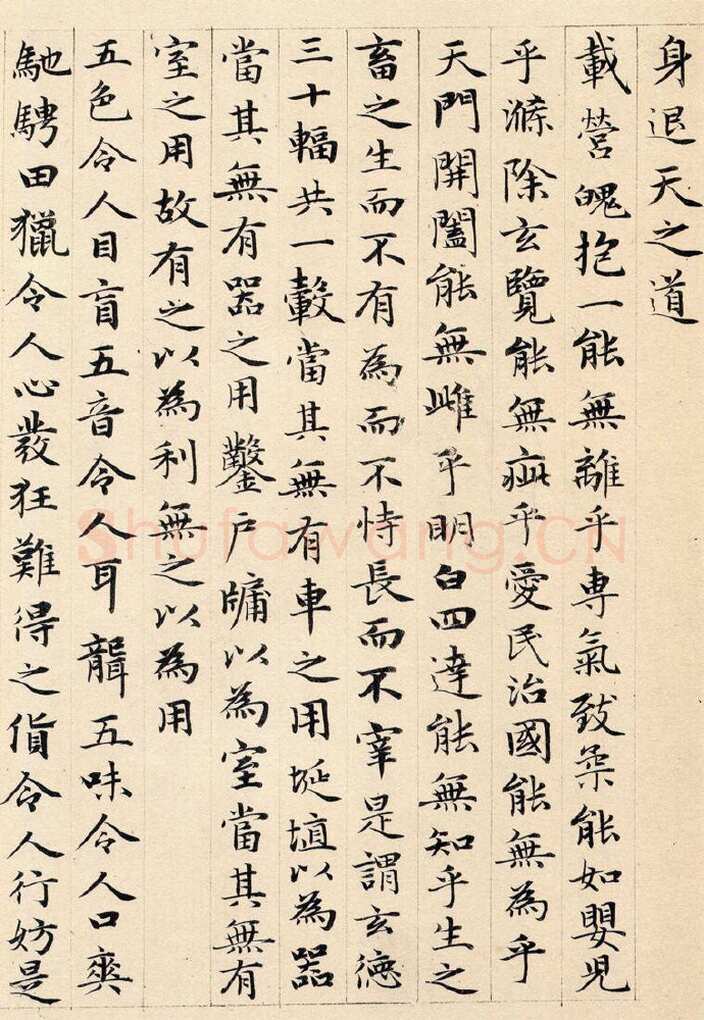 身退天之道
載營魄抱一能無離乎專氣致柔能如嬰兒
乎滌除玄覽能無疵乎愛民治國能無為乎
天門開闔能無雌乎明白四達能無知乎生之
畜之生而不有為而不恃長而不宰是謂玄德
三十輻共一轂當其無有車之用埏埴以為器
當其無有器之用鑿戶牖以為室當其無有
室之用故有之以為利無之以為用
五色令人目盲五音令人耳聾五味令人口爽
馳騁田獵令人心發狂難得之貨令人行妨是
Shufawang.CN